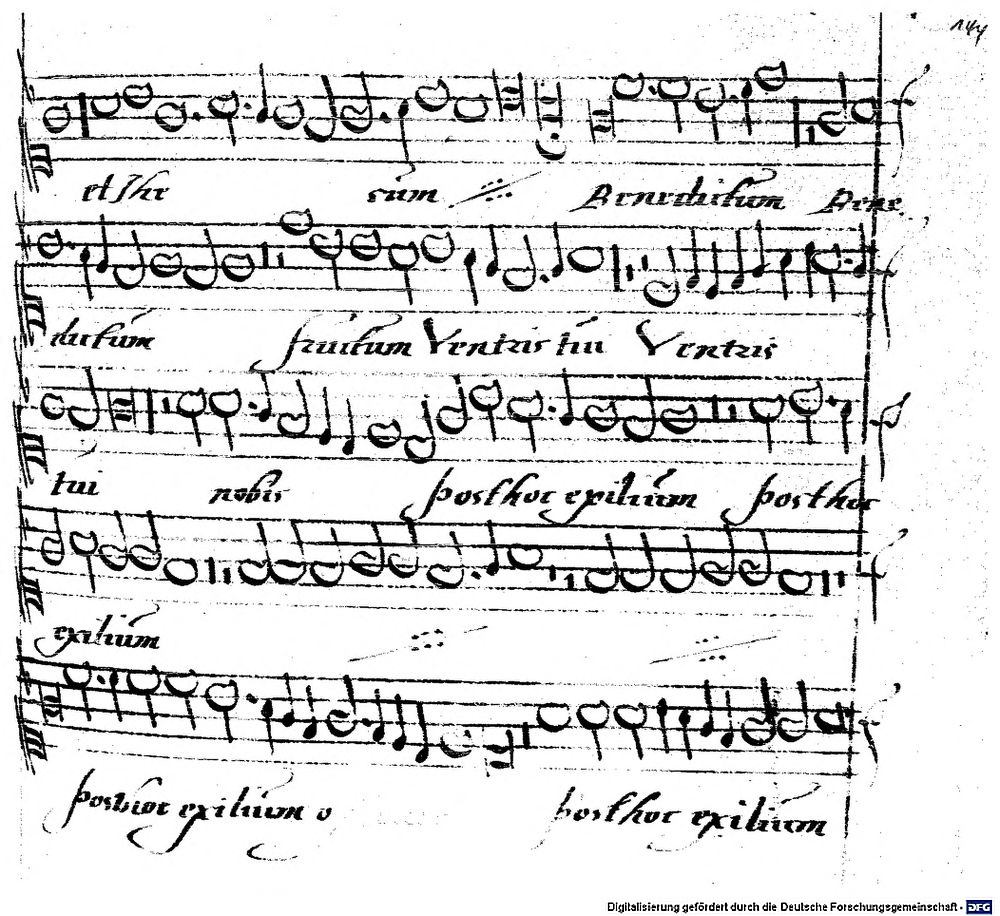 144
et Ihe sum Benedictum Bene
dictum fructum Ventris tui Ventris
tui nobis posthoc exilium posthoc
exilium
posthoc exilium o posthoc exilium
Digitalisierung gefördert durch die Deutsche Forschungsgemeinschaft - DFG